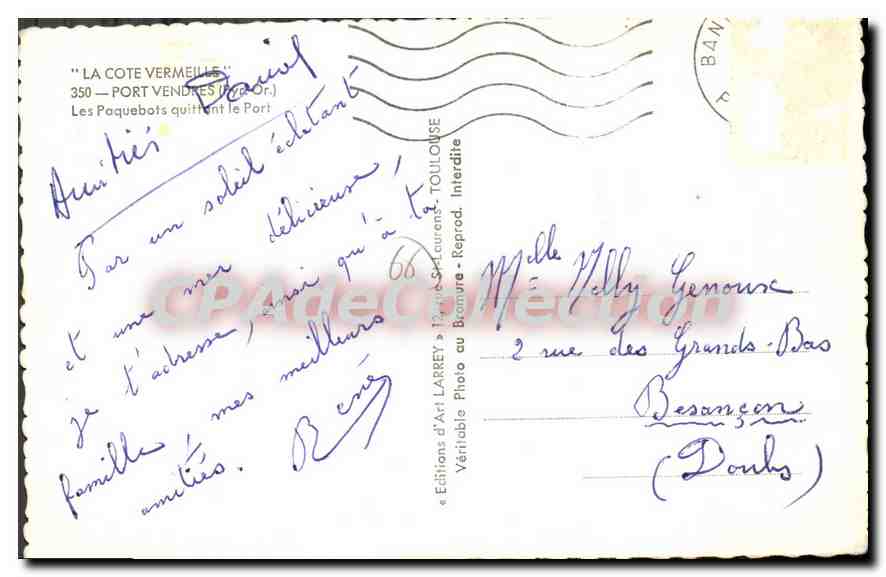 " LA COTE VERMEILLE "
350 — PORT VENDRES (Pyr.-Or.)
Les Paquebots quittant le Port
Amitiés Daniel
Par un soleil éclatant
et une mer délicieuse,
je t'adresse, ainsi qu'à ta
famille, mes meilleurs
amitiés. René
66
« Editions d'Art LARREY » 12, rue St-Laurens - TOULOUSE
Véritable Photo au Bromure - Reprod. Interdite
BAN
Melle Nelly Genoux
2 rue des Grands-Bas
Besançon
(Doubs)
CPAdeCollection